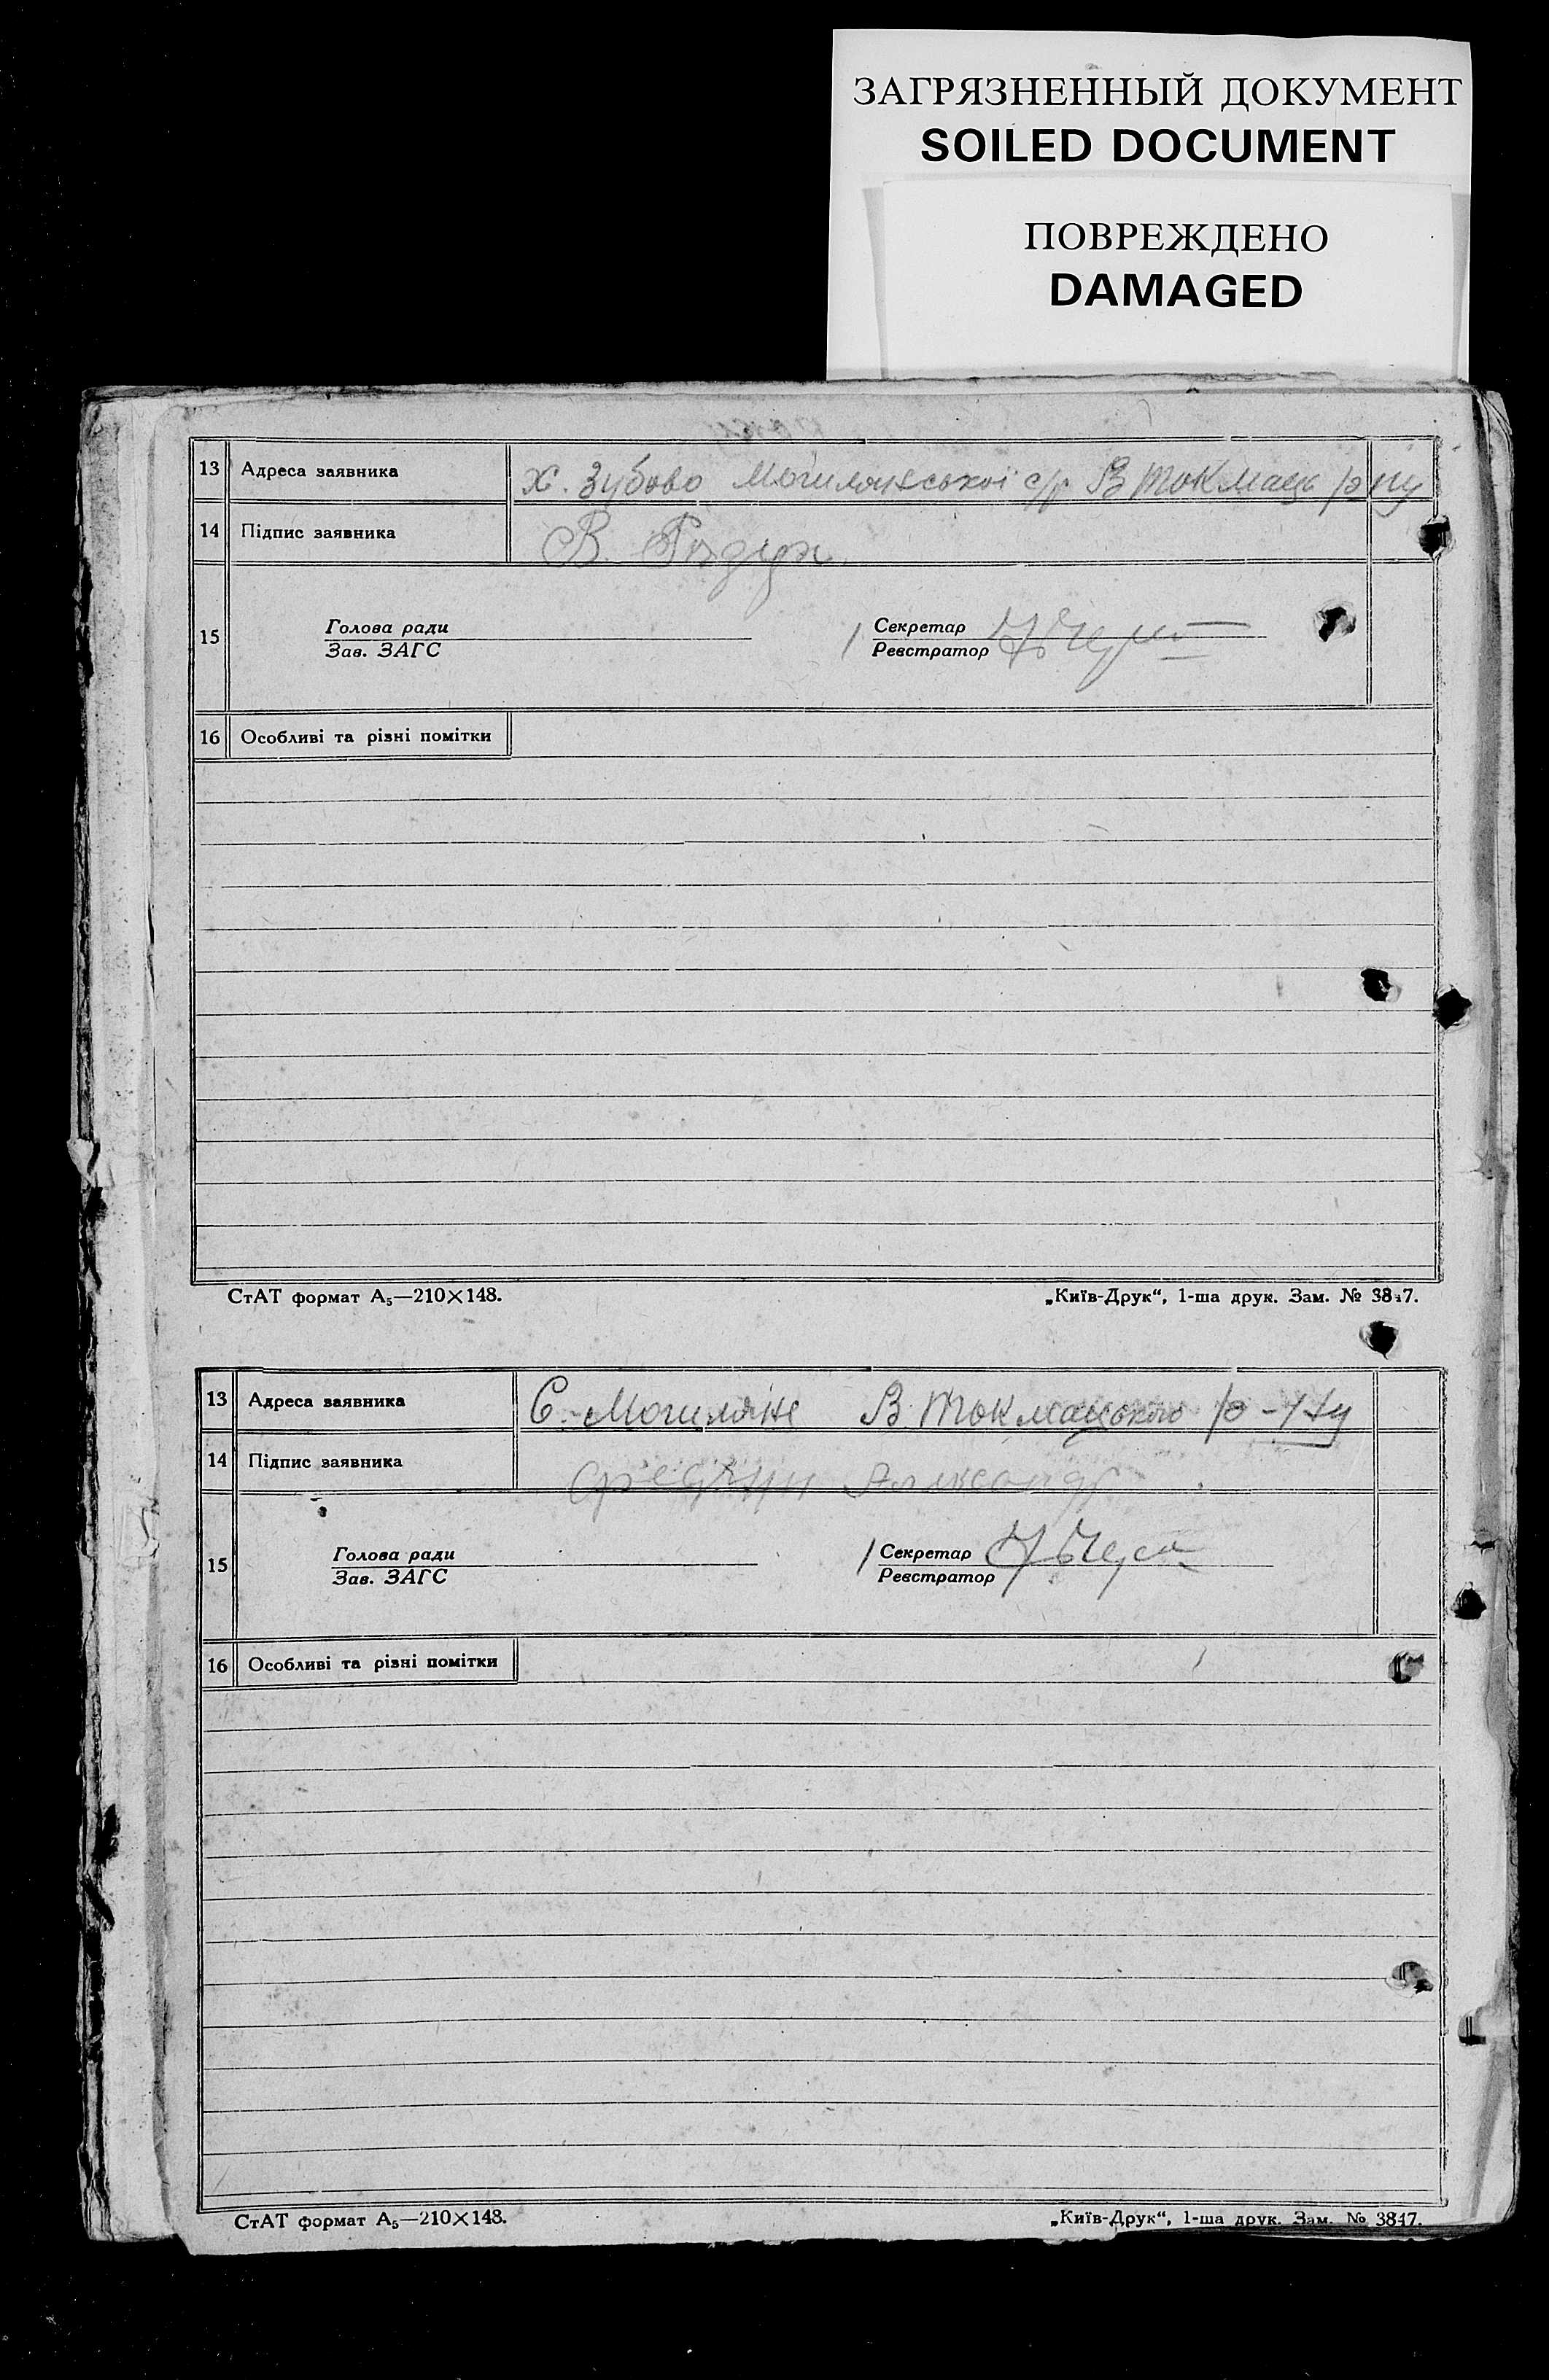 ЗАГРЯЗНЕННЫЙ ДОКУМЕНТ
SOILED DOCUMENT
ПОВРЕЖДЕНО
DAMAGED
13 Адреса заявника х. Зубово Могилянської с/р В Токмаць р ну
14 Підпис заявника В.
15 Голова ради Секретар
Зав. ЗАГС Реєстратор
16 Особливі та різні помітки
СтАТ формат А₅—210×148. „Київ-Друк“, 1-ша друк. Зам. № 3847.
13 Адреса заявника С. Могиляне В. Токмацького р-ну
14 Підпис заявника Александр
15 Голова ради Секретар
Зав. ЗАГС Реєстратор
16 Особливі та різні помітки
СтАТ формат А₅—210×148. „Київ-Друк“, 1-ша друк. Зам. № 3847.